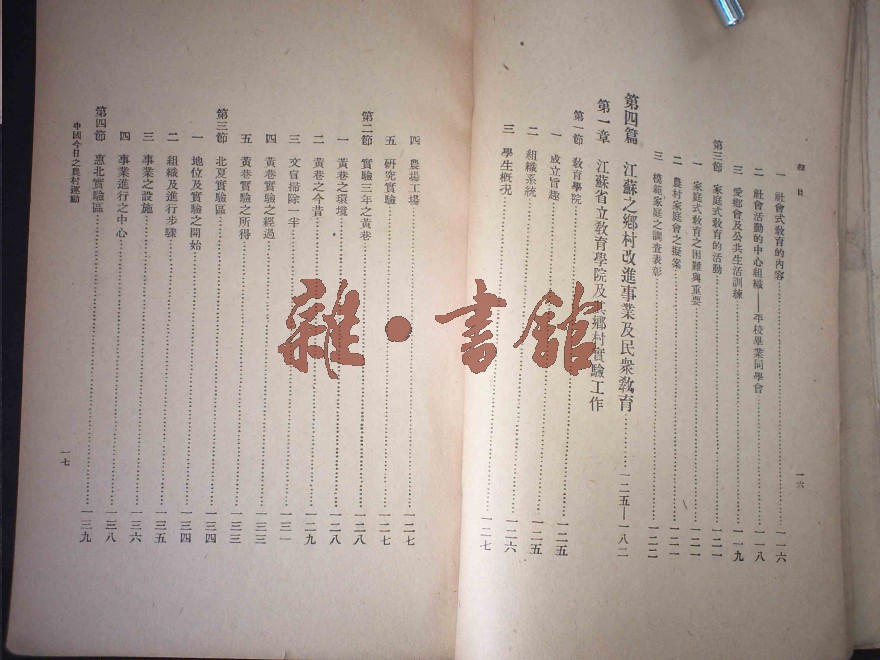 總目
一六
一 社會式教育的內容……一一六
二 社會活動的中心組織——平校畢業同學會……一一八
三 愛鄉會及公共生活訓練……一一九
第三節 家庭式教育的活動……一二一
一 家庭式教育之困難與重要……一二一
二 農村家庭會之擬案……一二一
三 模範家庭之調查表彰……一二二
第四篇 江蘇之鄉村改進事業及民衆教育……一二五—一八二
第一章 江蘇省立教育學院及其鄉村實驗工作
第一節 教育學院……一二五
一 成立旨趣……一二五
二 組織系統……一二五
三 學生概況……一二六
四 農場工場……一二七
五 研究實驗……一二七
第二節 實驗三年之黃巷……一二八
一 黃巷之環境……一二八
二 黃巷之今昔……一二九
三 文盲掃除一半……一三一
四 黃巷實驗之經過……一三三
五 黃巷實驗之所得……一三三
第三節 北夏實驗區……一三四
一 地位及實驗之開始……一三四
二 組織及進行步驟……一三五
三 事業之設施……一三五
四 事業進行之中心……一三八
第四節 惠北實驗區……一三九
中國今日之農村運動
一七
雜·書館